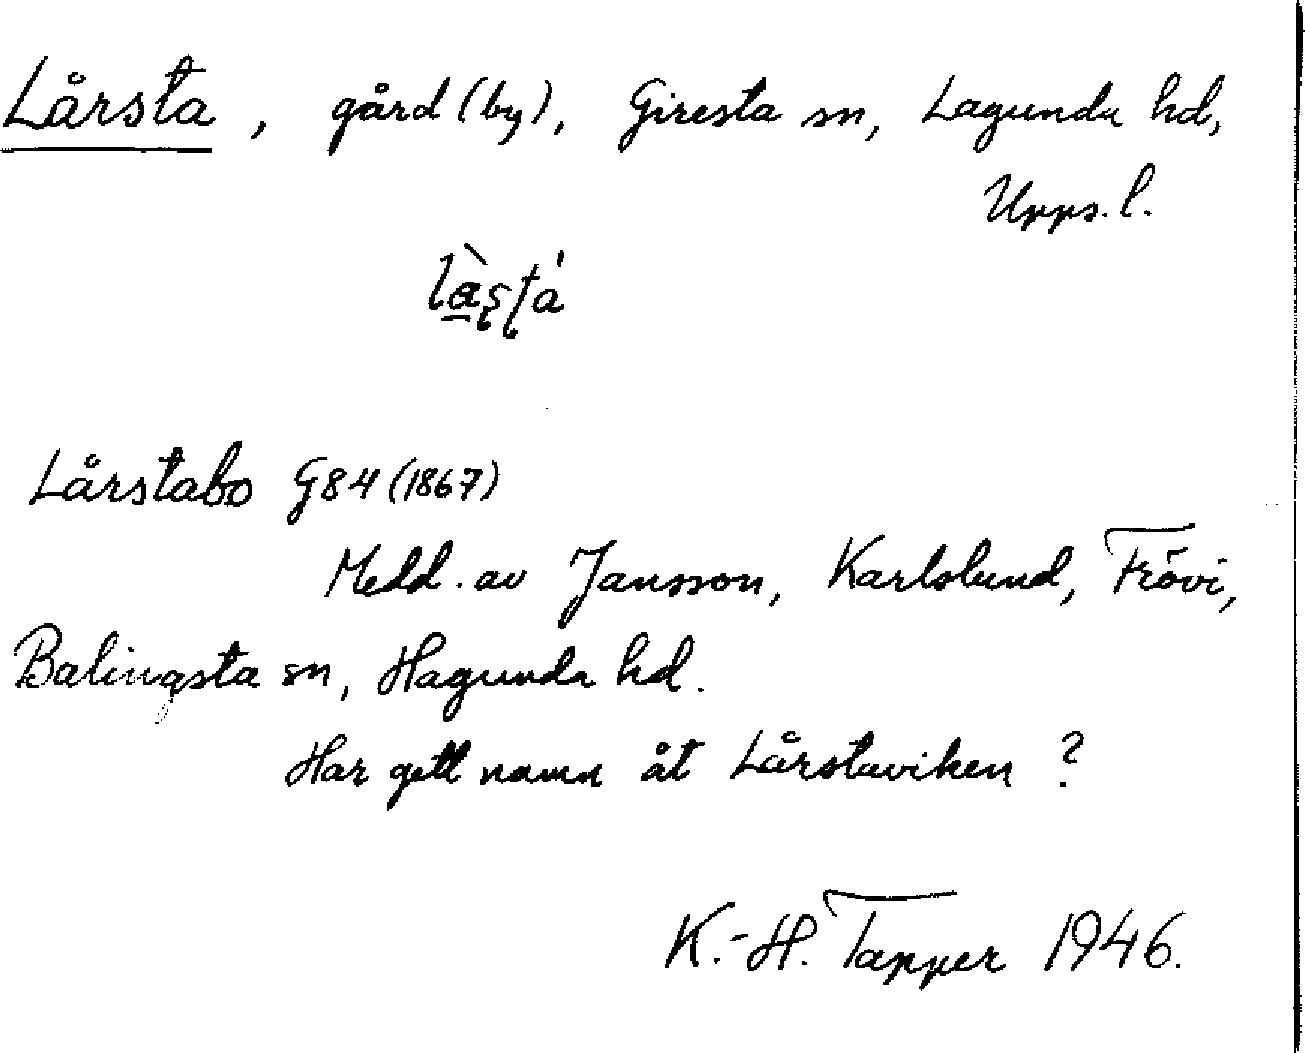 Lårsta, gård (by), Giresta sn, Lagunda hd,
Upps. l.
Lårstabo G84 (1867)
Medd. av Jansson, Karlslund, Frövi,
Balingsta sn, Hagunda hd.
Har gett namn åt Lårstaviken?
K.-H. Tapper 1946.